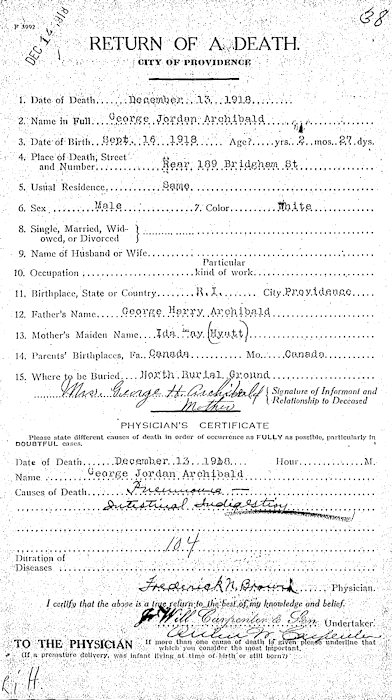 P 3992
38
DEC 14 1918
RETURN OF A DEATH.
CITY OF PROVIDENCE
1. Date of Death, December 13, 1918.
2. Name in Full George Jordan Archibald
3. Date of Birth Sept. 16 1918 Age? yrs. 2 mos. 27 dys.
4. Place of Death, Street and Number Rear 189 Bridgham St
5. Usual Residence, Same
6. Sex Male 7. Color White
8. Single, Married, Widowed, or Divorced
9. Name of Husband or Wife
10. Occupation Particular kind of work
11. Birthplace, State or Country R.I. City Providence
12. Father's Name George Harry Archibald
13. Mother's Maiden Name Ida May (Hyatt)
14. Parents' Birthplaces, Fa. Canada Mo. Canada
15. Where to be Buried North Burial Ground
Mrs. George H. Archibald Signature of Informant and
Mother Relationship to Deceased
PHYSICIAN'S CERTIFICATE
Please state different causes of death in order of occurrence as FULLY as possible, particularly in
DOUBTFUL cases.
Date of Death December 13, 1918 Hour M.
Name George Jordan Archibald
Causes of Death Pneumonia —
Intestinal Indigestion
104
Duration of
Diseases
Frederick N. Brown Physician.
I certify that the above is a true return to the best of my knowledge and belief.
J. Will Carpenter & Son Undertaker.
Arthur W. Carpenter
TO THE PHYSICIAN If more than one cause of death is given please underline that
which you consider the most important.
(If a premature delivery, was infant living at time of birth or still born?)